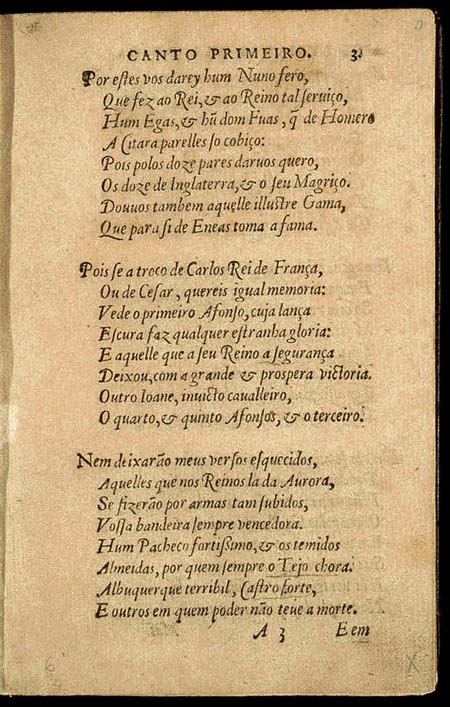 CANTO PRIMEIRO. 3
Por estes vos darey hum Nuno fero,
Que fez ao Rei, & ao Reino tal seruiço,
Hum Egas, & hũ dom Fuas, q̃ de Homero
A Citara parelles so cobiço:
Pois polos doze pares daruos quero,
Os doze de Inglaterra, & o seu Magriço.
Douuos tambem aquelle illustre Gama,
Que para si de Eneas toma a fama.
Pois se a troco de Carlos Rei de França,
Ou de Cesar, quereis igual memoria:
Vede o primeiro Afonso, cuja lança
Escura faz qualquer estranha gloria:
E aquelle que a seu Reino a segurança
Deixou, com a grande & prospera victoria.
Outro Ioane, inuicto caualleiro,
O quarto, & quinto Afonsos, & o terceiro.
Nem deixarão meus versos esquecidos,
Aquelles que nos Reinos la da Aurora,
Se fizerão por armas tam subidos,
Vossa bandeira sempre vencedora.
Hum Pacheco fortissimo, & os temidos
Almeidas, por quem sempre o Tejo chora.
Albuquerque terribil, Castro forte,
E outros em quem poder não teue a morte.
A 3 E em